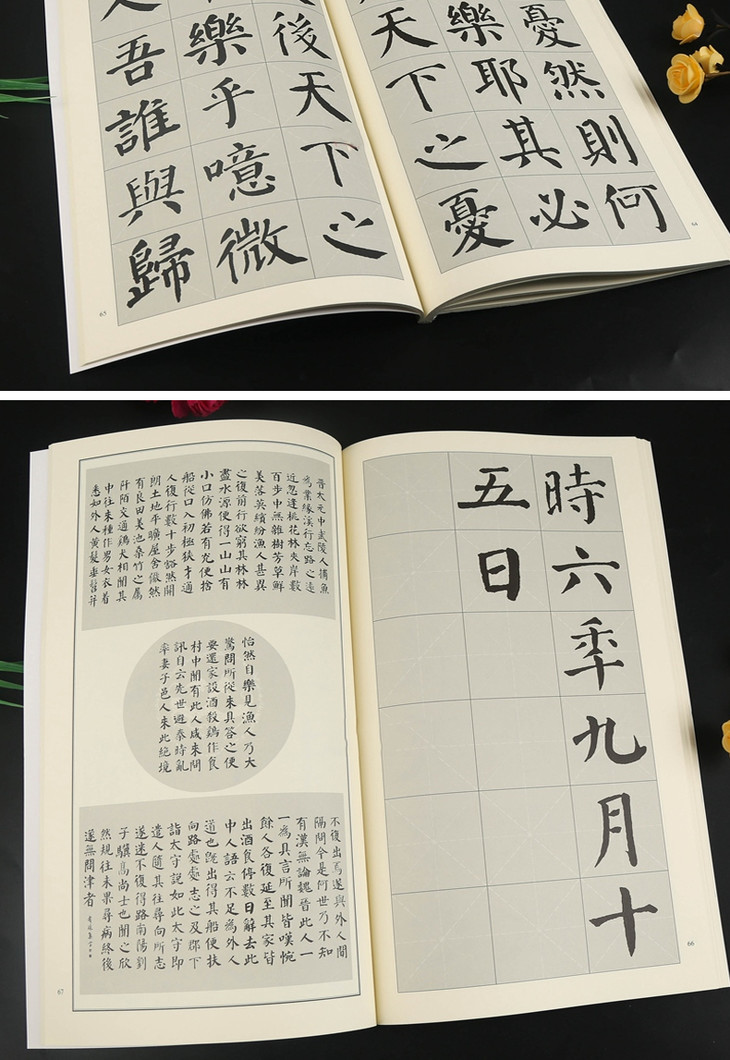 憂然則何
樂耶其必
天下之憂
64
後天下之
樂乎噫微
人吾誰與歸
65
時六秊九月十
五日
66
晉太元中武陵人捕魚
為業緣溪行忘路之遠
近忽逢桃花林夾岸數
百步中無雜樹芳草鮮
美落英繽紛漁人甚異
之復前行欲窮其林林
盡水源便得一山山有
小口仿佛若有光便捨
船從口入初極狹才通
人復行數十步豁然開
朗土地平曠屋舍儼然
有良田美池桑竹之屬
阡陌交通鷄犬相聞其
中往來種作男女衣着
悉如外人黃髮垂髫并
怡然自樂見漁人乃大
驚問所從來具答之便
要還家設酒殺鷄作食
村中聞有此人咸來問
訊自云先世避秦時亂
率妻子邑人來此絕境
不復出焉遂與外人間
隔問今是何世乃不知
有漢無論魏晉此人一
一為具言所聞皆嘆惋
餘人各復延至其家皆
出酒食停數日辭去此
中人語云不足為外人
道也既出得其船便扶
向路處處志之及郡下
詣太守說如此太守即
遣人隨其往尋向所志
遂迷不復得路南陽劉
子驥高尚士也聞之欣
然規往未果尋病終後
遂無問津者
67